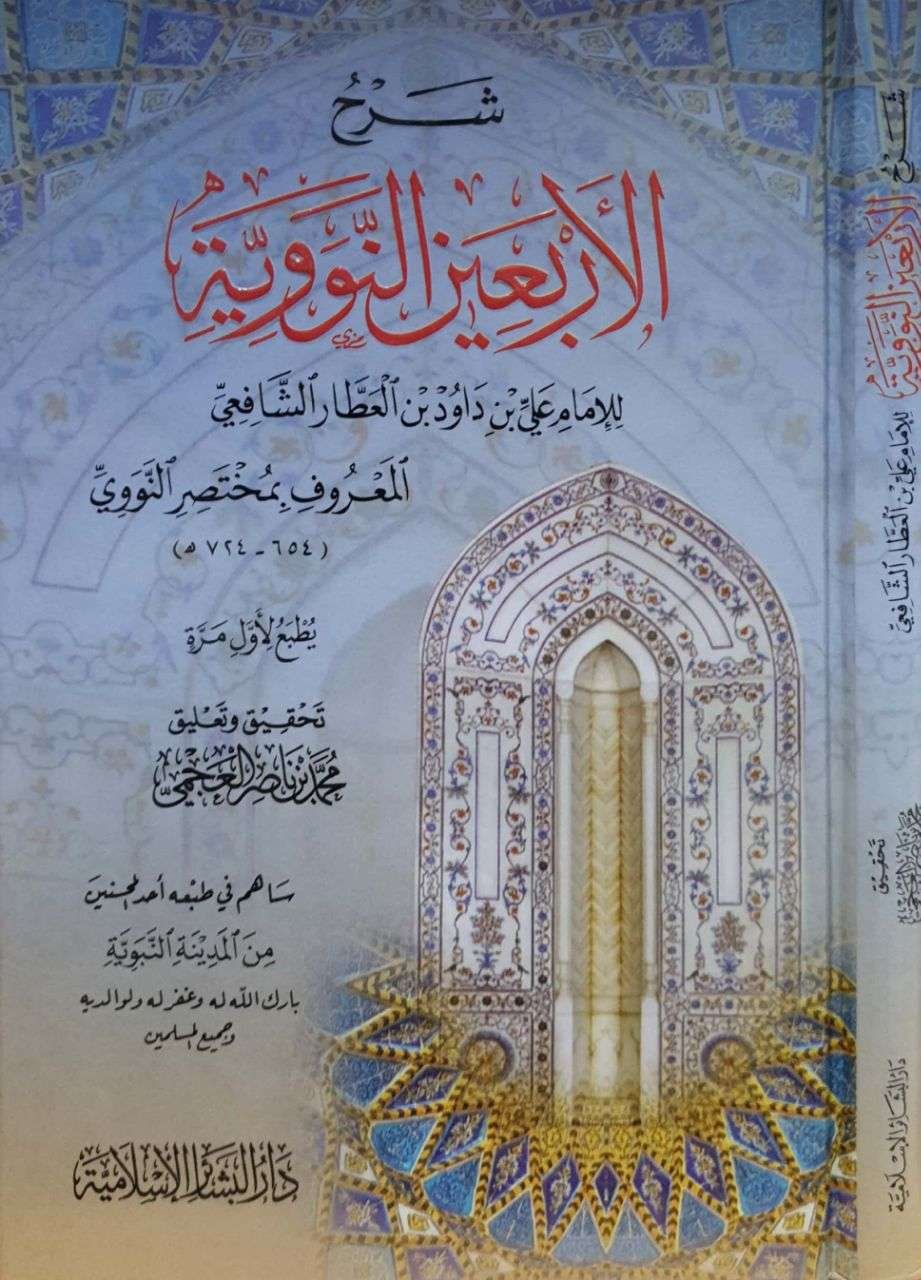 شَرْحُ
الأَرْبَعِينَ النَّوَوِيَّةِ
لِلإِمَامِ عَلِيِّ بْنِ دَاوُدَ بْنِ ٱلْعَطَّارِ ٱلشَّافِعِيِّ
ٱلْمَعْرُوفِ بِمُخْتَصِرِ ٱلنَّوَوِيِّ
(٦٥٤ - ٧٢٤ ه)
يُطْبَعُ لِأَوَّلِ مَرَّةٍ
تَحْقِيق وَتَعْلِيق
مُحَمَّد بْن نَاصِر الْعَجْمِيّ
سَاهم في طبْعه أحد المحسنين
مِنَ ٱلْمَدِينَةِ ٱلنَّبَوِيَّةِ
بارك الله له وغفر له ولوالديه
وجميع المسلمين
دَارُ البَشَائِرِ الإِسْلَامِيَّة
شَرْحُ
الأَرْبَعِينَ النَّوَوِيَّةِ
لِلإِمَامِ عَلِيِّ بْنِ ٱلْعَطَّارِ ٱلشَّافِعِيِّ
تَحْقِيق
مُحَمَّد بْن نَاصِر الْعَجْمِيّ
دَارُ البَشَائِرِ الإِسْلَامِيَّة